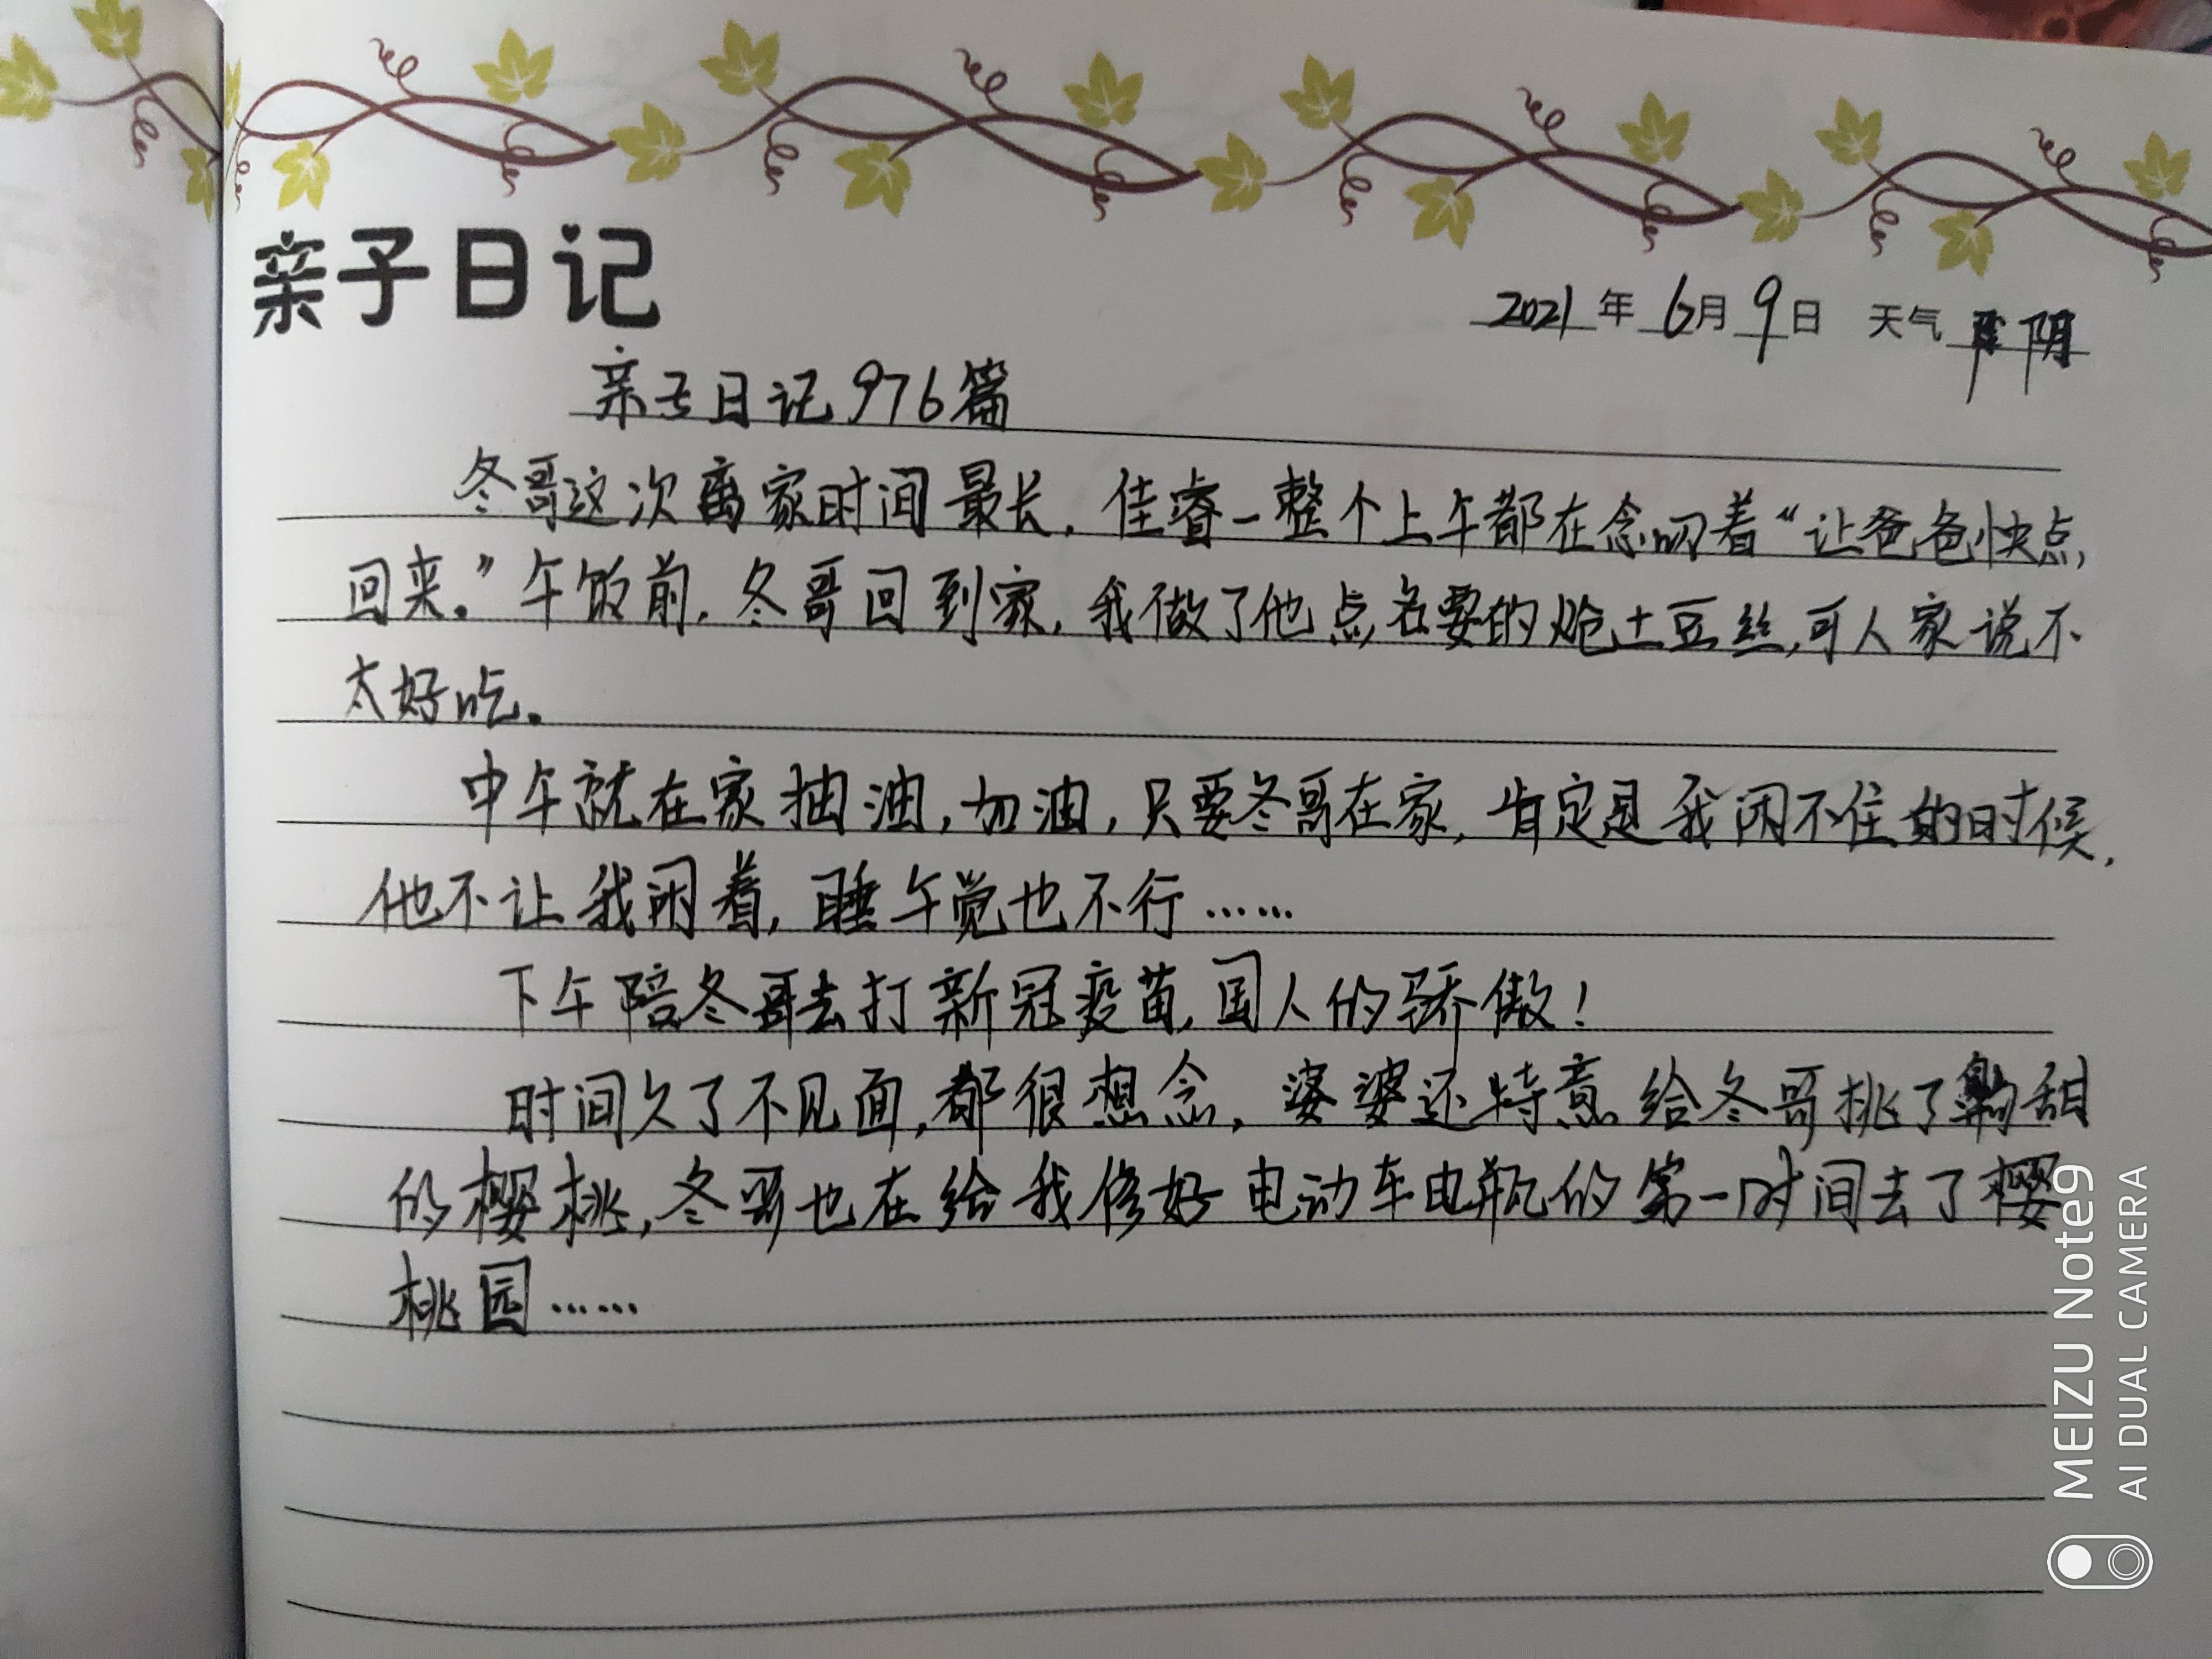 亲子日记
2021年6月9日 天气 阴
亲子日记976篇
冬哥这次离家时间最长,佳睿一整个上午都在念叨着“让爸爸快点
回来。”午饭前,冬哥回到家,我做了他点名要的炝土豆丝,可人家说不
太好吃。
中午就在家抽油,加油,只要冬哥在家,肯定是我闲不住的时候,
他不让我闲着,睡午觉也不行……
下午陪冬哥去打新冠疫苗,国人的骄傲!
时间久了不见面,都很想念,婆婆还特意给冬哥挑了 甜
的樱桃,冬哥也在给我修好电动车电瓶的第一时间去了樱
桃园……
MEIZU Note9
AI DUAL CAMERA